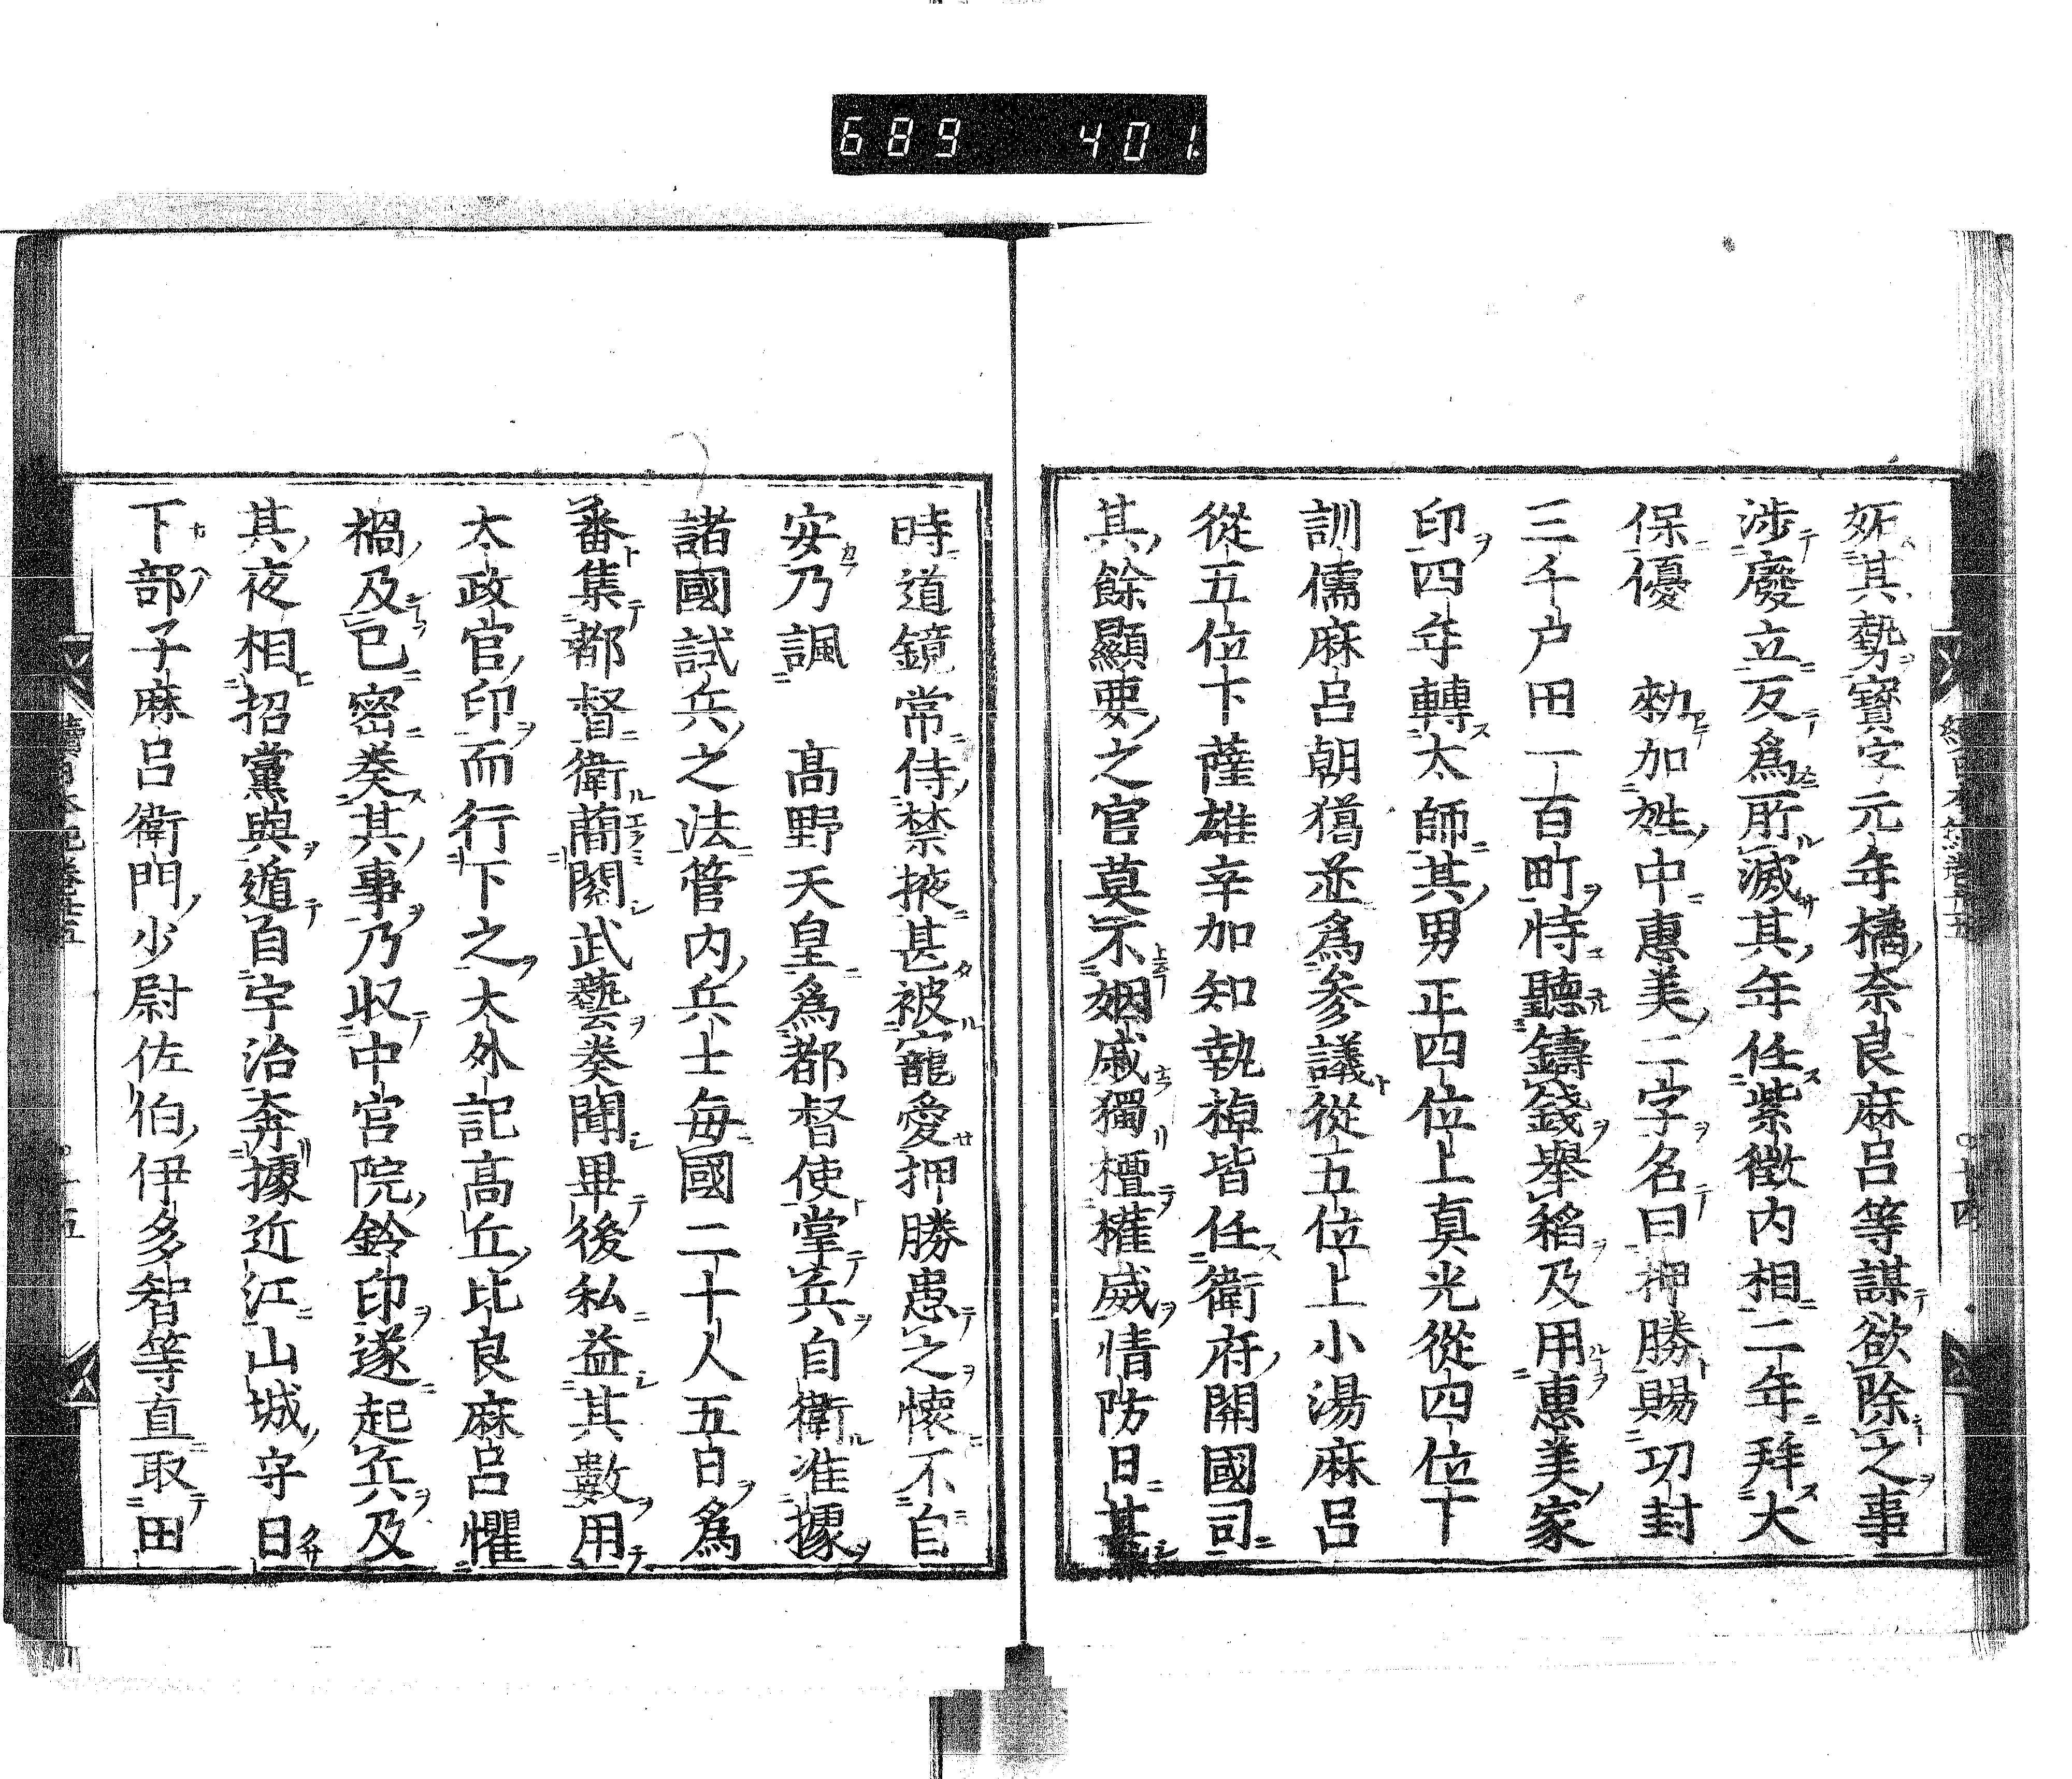 689 401
妬其勢寶字元年橘奈良麻呂等謀欲除之事
涉廢立反爲所滅其年任紫微内相二年拜大
保優 勑加姓中惠美二字名曰押勝賜功封
三千戸田一百町特聽鑄錢舉稻及用惠美家
印四年轉太師其男正四位上真光從四位下
訓儒麻呂朝獦並爲參議從五位上小湯麻呂
從五位下薩雄辛加知執棹皆任衛府關國司
其餘顯要之官莫不姻戚獨擅權威猜防日甚
時道鏡常侍禁掖甚被寵愛押勝患之懷不自
安乃諷 髙野天皇爲都督使掌兵自衛准據
諸國試兵之法管内兵士每國二十人五日爲
番集都督衛蕳閱武藝奏聞畢後私益其數用
太政官印而行下之大外記髙丘比良麻呂懼
禍及已密奏其事乃収中宮院鈴印遂起兵及
其夜相招黨與遁自宇治奔據近江山城守日
下部子麻呂衛門少尉佐伯伊多智等直取田